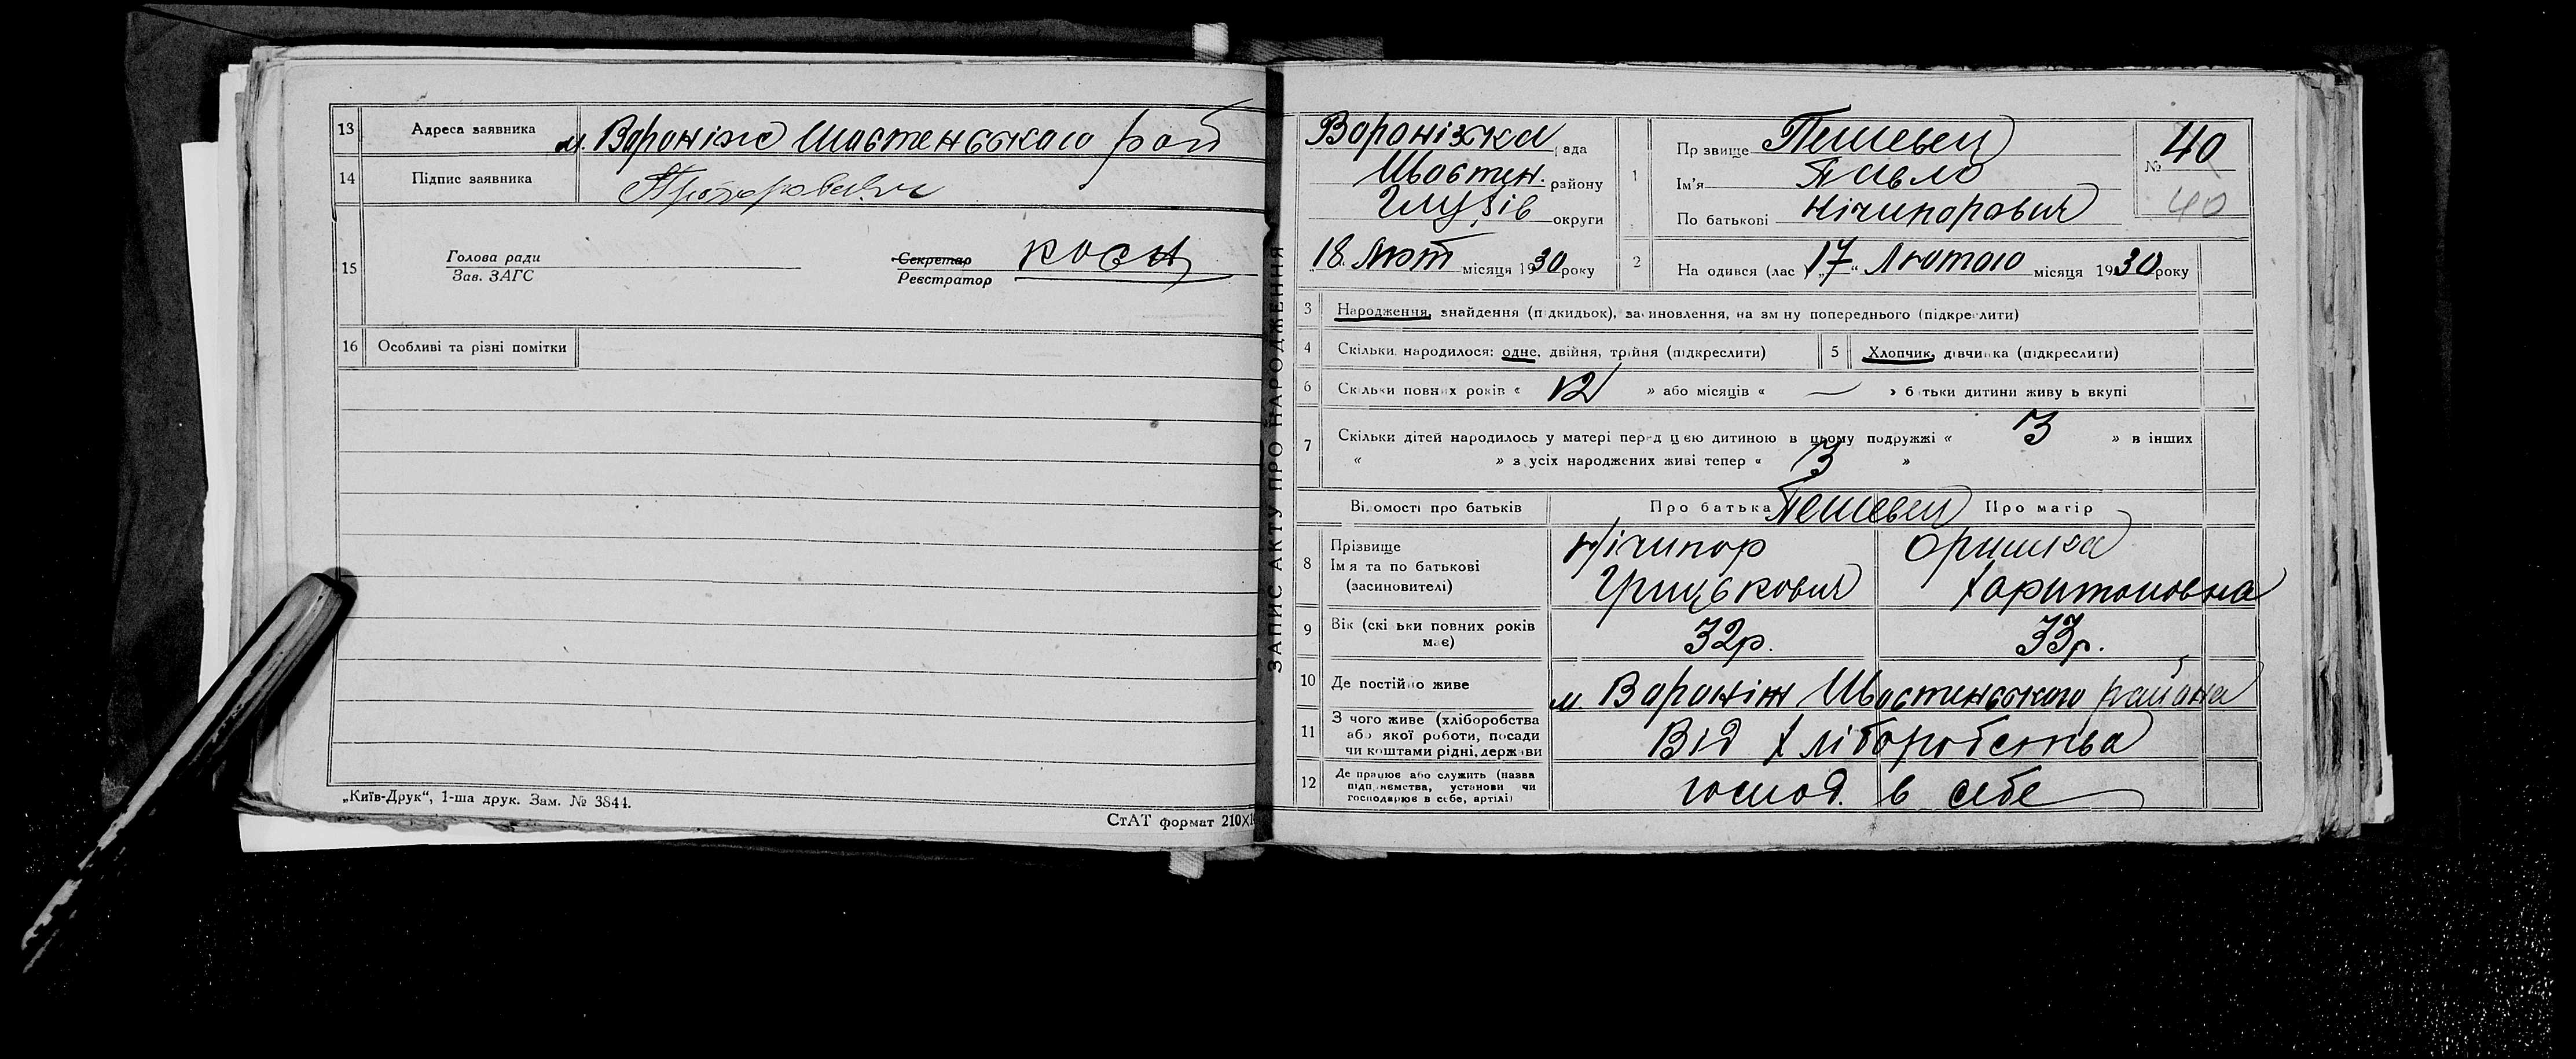 13 Адреса заявника м. Вороніж Шостенського рай
14 Підпис заявника
15 Голова ради
Зав. ЗАГС
Секретар
Реєстратор
16 Особливі та різні помітки
„Київ-Друк“, 1-ша друк. Зам. № 3844.
СтАТ формат 210X
ЗАПИС АКТУ ПРО НАРОДЖЕННЯ
Воронізка рада
Шостен. району
Глухів округи
18 Лют місяця 1930 року
1 Прізвище Пешевец
Ім'я Павло
По батькові Нічипорович
№ 40
40
2 На одився (лас ) „17“ Лютого місяця 1930 року
3 Народження, знайдення (підкидьок), засиновлення, на зміну попереднього (підкреслити)
4 Скільки народилося: одне, двійня, трійня (підкреслити) 5 Хлопчик, дівчинка (підкреслити)
6 Скільки повних років « 12 » або місяців « — » батьки дитини живуть вкупі
7 Скільки дітей народилось у матері перед цією дитиною в цьому подружжі « 3 » в інших
« » з усіх народжених живі тепер « 3 »
Відомості про батьків Про батька Пешевец Про матір
8 Прізвище
Ім'я та по батькові
(засиновителі)
Нічипор
Грицькович
Оришка
Харитоновна
9 Вік (скільки повних років має) 32р. 33р.
10 Де постійно живе м Вороніж Шостенського района
11 З чого живе (хліборобства
або якої роботи, посади
чи коштами рідні, держави
Від хліборобства
12 Де працює або служить (назва
підприємства, установи чи
господарює в себе, артілі)
господ. в себе